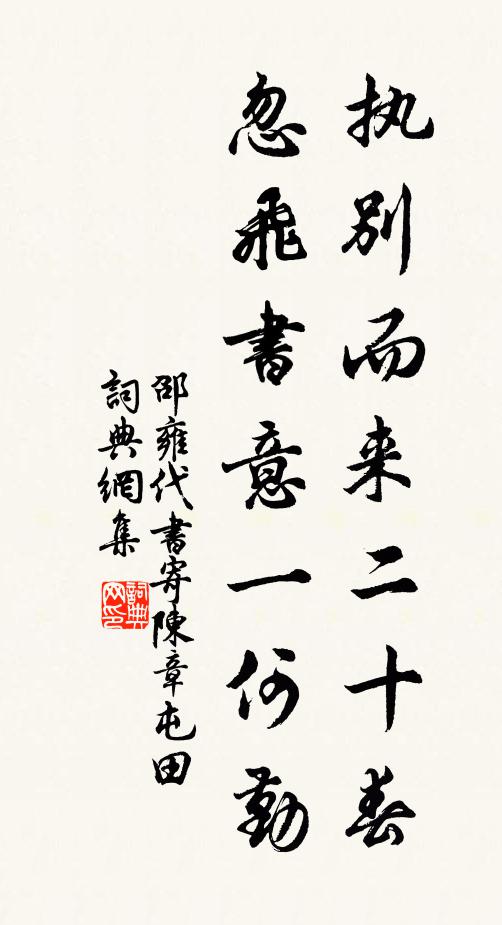 执别而来二十春
忽飛書意一何勤
邵雍代書寄陳章屯田
詞典網集
詞典网印